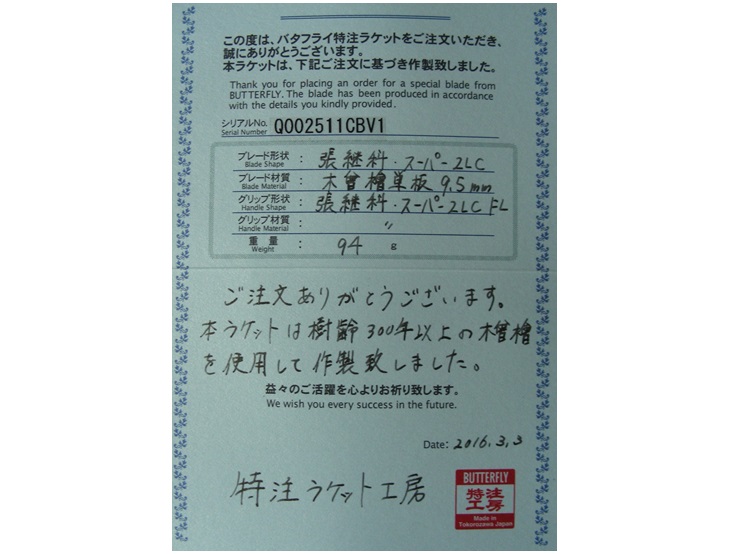 この度は、バタフライ特注ラケットをご注文いただき、
誠にありがとうございます。
本ラケットは、下記ご注文に基づき作製致しました。
Thank you for placing an order for a special blade from
BUTTERFLY. The blade has been produced in accordance
with the details you kindly provided.
シリアルNo.
Serial Number
Q002511CBV1
ブレード形状 : 張継科・スーパーZLC
Blade Shape
ブレード材質 : 木曽檜単板 9.5mm
Blade Material
グリップ形状 : 張継科・スーパーZLC FL
Handle Shape
グリップ材質 : 〃
Handle Material
重量 : 94 g
Weight
ご注文ありがとうございます。
本ラケットは樹齢300年以上の木曽檜
を使用して作製致しました。
益々のご活躍を心よりお祈り致します。
We wish you every success in the future.
Date: 2016.3.3
特注ラケット工房
BUTTERFLY
特注
工房
Made in
Tokorozawa Japan